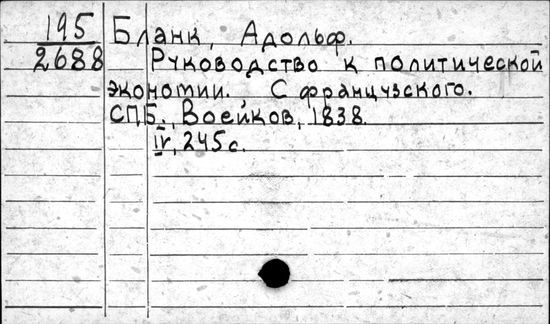 195 Бланк, Адольф.
2688 Руководство к политической
экономии. С французского.
СПБ., Воейков, 1838.
IV, 245 с.